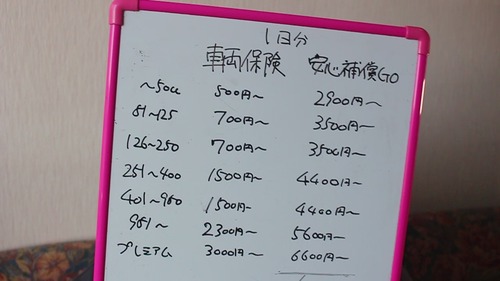 1日分
車両保険 安心補償GO
~50cc 500円~ 2900円~
51~125 700円~ 3500円~
126~250 700円~ 3500円~
251~400 1500円~ 4400円~
401~950 1500円~ 4400円~
951~ 2300円~ 5600円~
プレミアム 3000円~ 6600円~